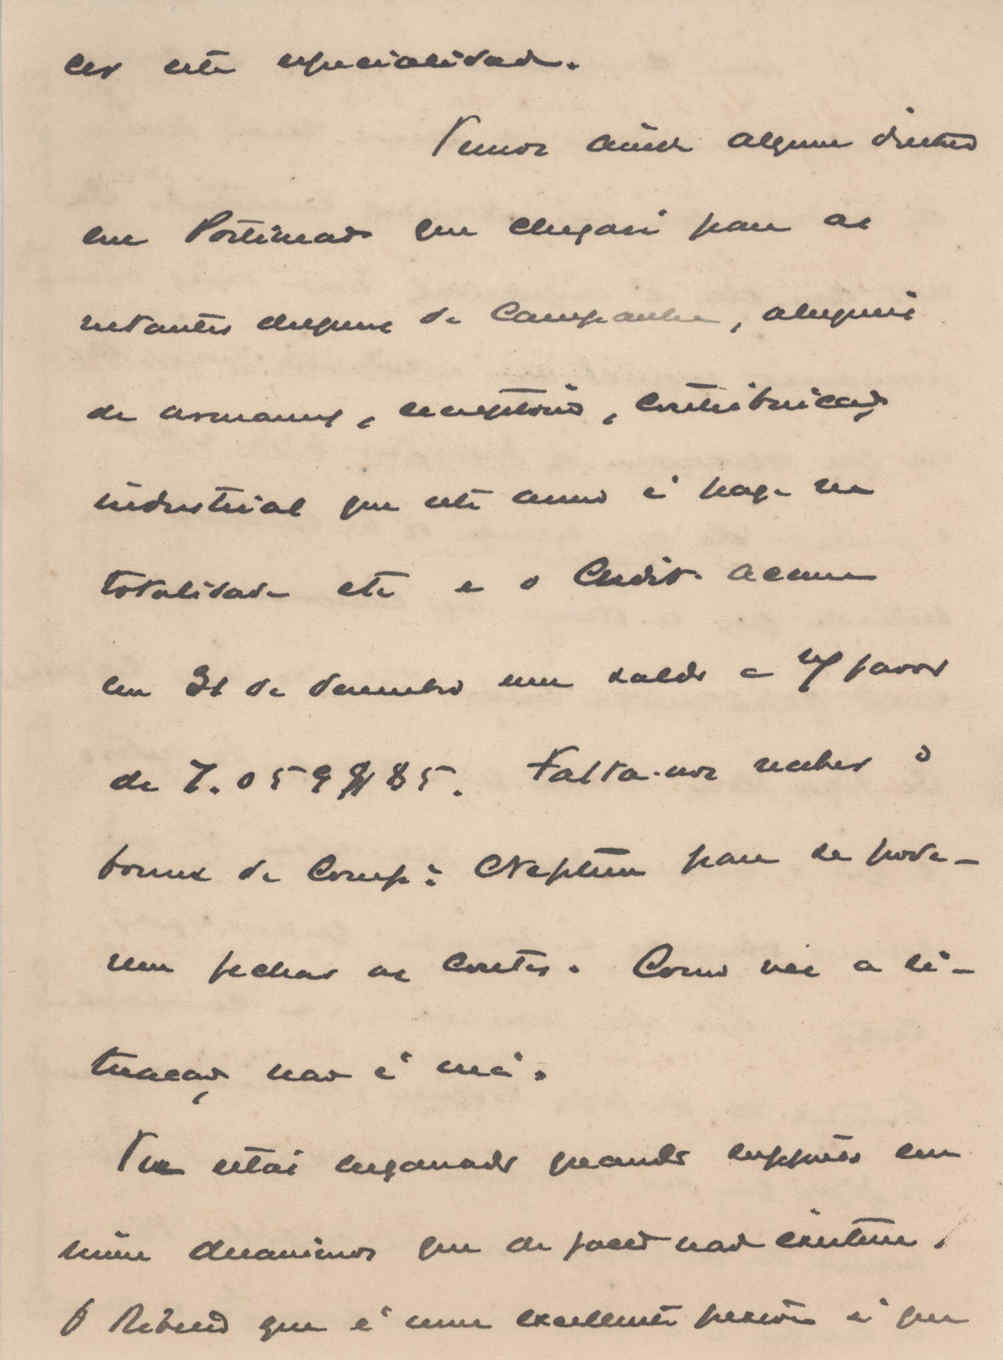 cer esta especialidade.
Temos ainda algum dinheiro
em Portimão que chegará para as
restantes despezas de Campanha, alugueis
de armazens, escriptorio, contribuição
industrial que este anno é paga na
totalidade etc e o Credito accusa
em 31 de Dezembro um saldo a n/ favor
de 7.059$85. Falta-nos receber o
bonus da Comp.ª Neptuno para se pode-
rem fechar as contas. Como vês a si-
tuação não é má.
Tu estás enganado quando suppões em
mim desanimos que de facto não existem.
O Ribeiro que é uma excellente pessoa é que